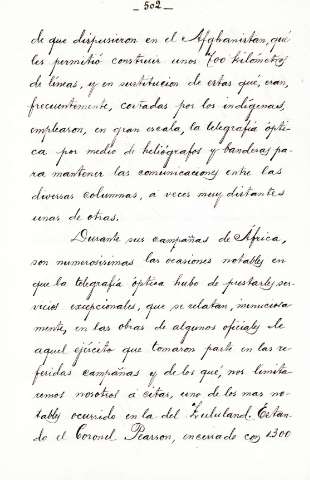 - 502 -
de que dispusieron en el Afghanistan, qué
les permitió construir unos 700 kilómetros
de líneas, y en sustitucion de estas qué, eran,
frecuentemente, cortadas por los indígenas,
emplearon, en gran escala, la telegrafía ópti-
ca por medio de heliógrafos y banderas pa-
ra mantener las comunicaciones entre las
diversas columnas, a veces muy distantes
unas de otras.
Durante sus campañas de África,
son numerosísimas las ocasiones notables en
que la telegrafía óptica hubo de prestarles ser-
vicios excepcionales, que se relatan, minuciosa-
mente, en las obras de algunos oficiales de
aquel ejército que tomaron parte en las re-
feridas campañas y de los qué, nos limita-
remos nosotros á citar, uno de los mas no-
tables ocurrido en la del Zululand. Estan-
do el Coronel Pearson, encerrado con 1300